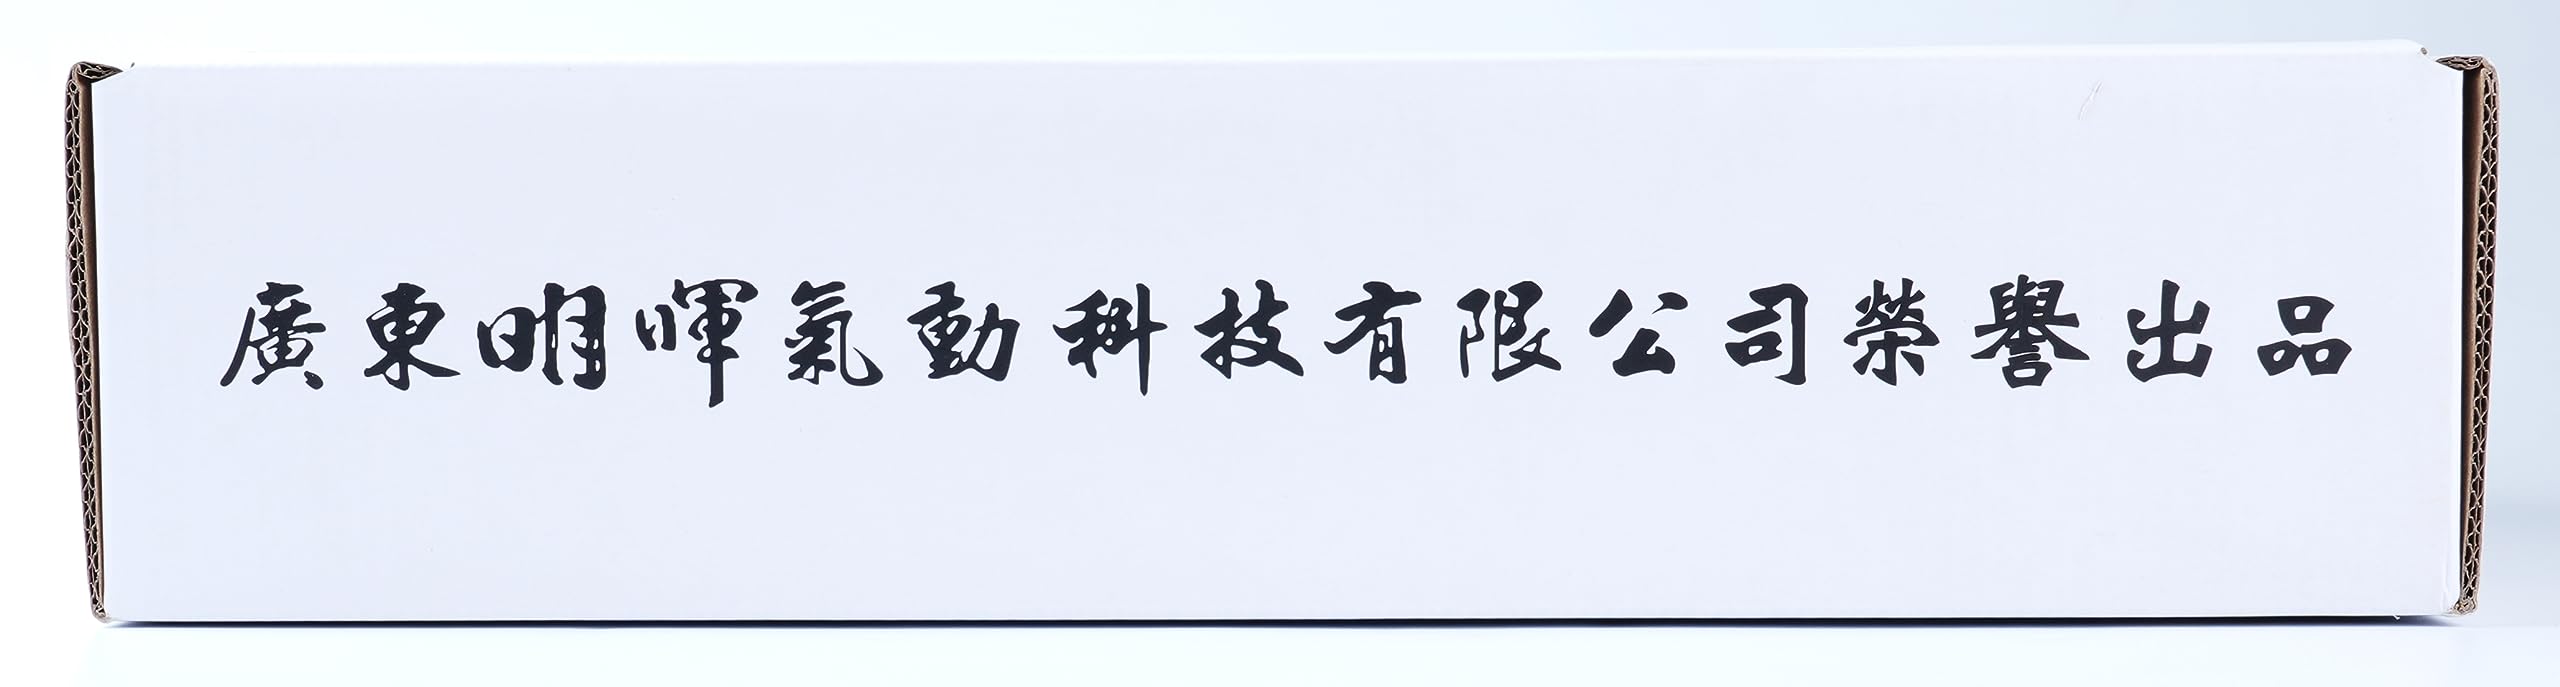 廣東明暉氣動科技有限公司榮譽出品